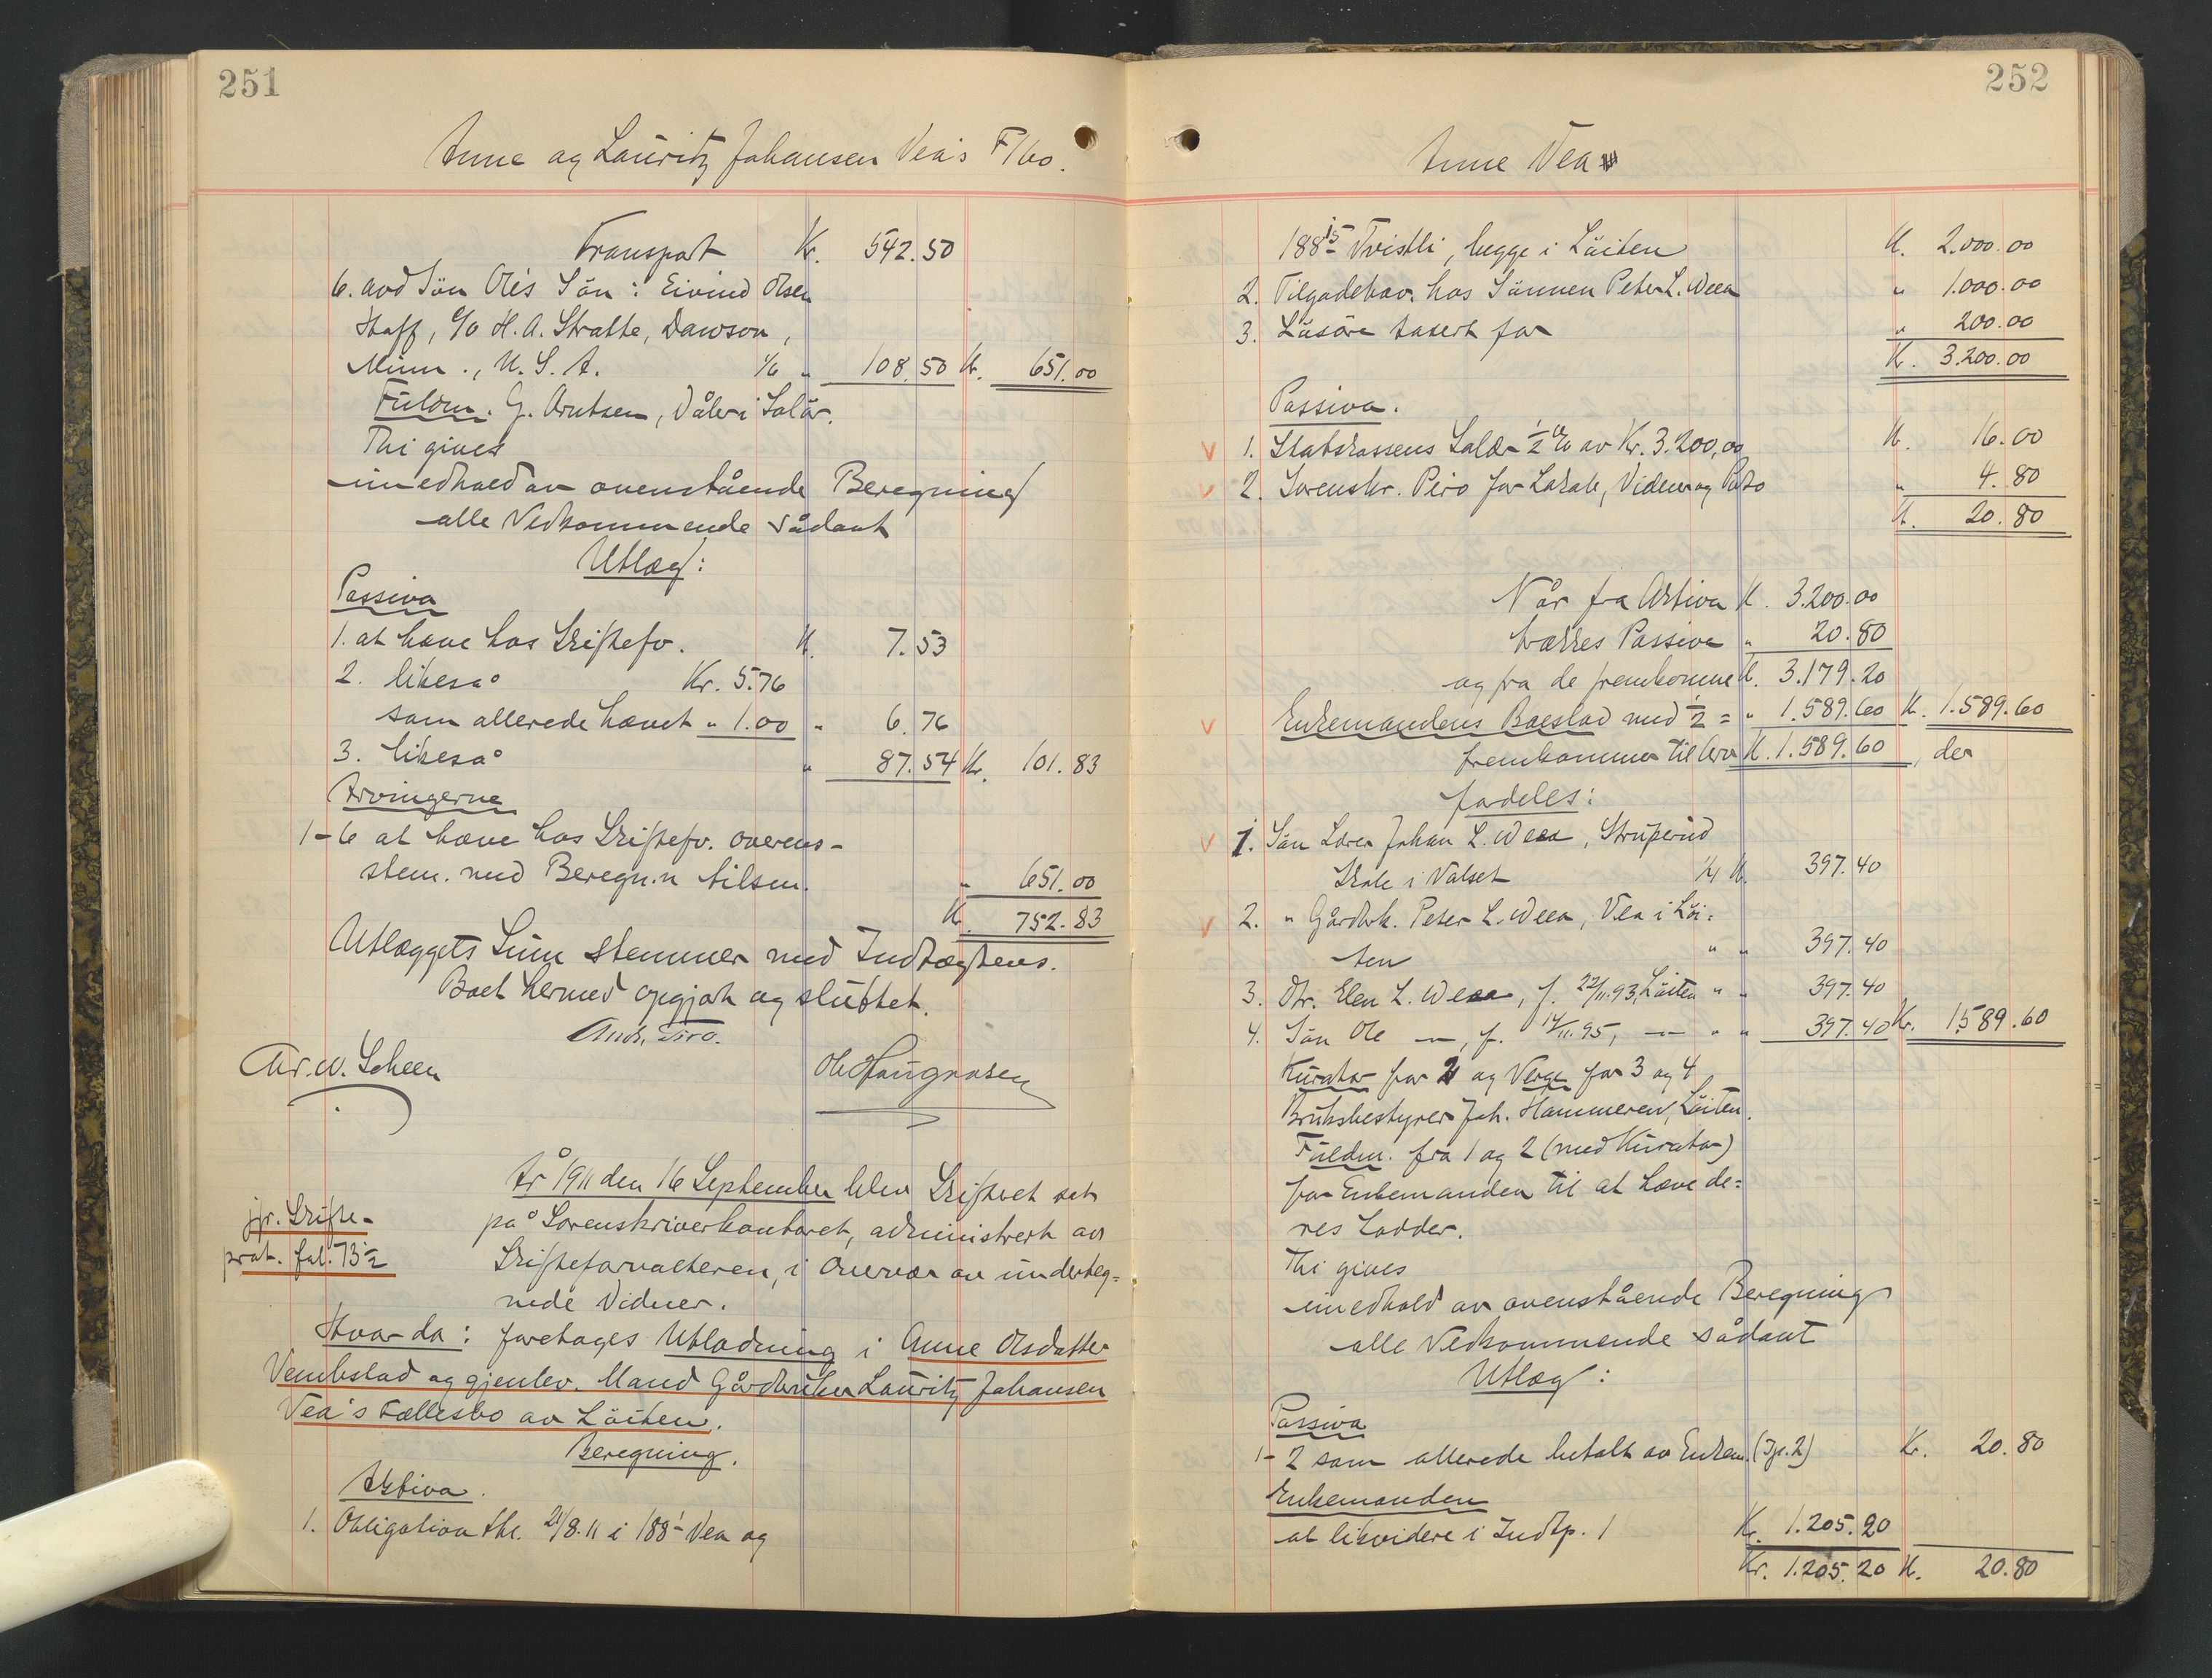 251
Anne og Lauritz Johansen Vea's F/bo.
Transport Kr. 542.50
6. avd Søn Ole's Søn: Eivind Olsen
Hoff, c/o H. A. Stratte, Dawson,
Minn., U. S. A. 1/6 " 108.50 Kr. 651.00
Fuldm. G. Arntsen, Våler i Solør.
Thi gives
-imedhold av ovenstående Beregning
-alle Vedkommende sådant
Utlæg:
Passiva
1. at hæve hos Skiftefv. Kr. 7.53
2. likeså Kr. 5.76
som allerede hævet " 1.00 " 6.76
3. likeså " 87.54 Kr. 101.83
Arvingerne
1-6 at hæve hos Skiftefv. overens-
stem. med Beregn.n tilsm. " 651.00
Kr. 752.83
Utlæggets Sum stemmer med Indtægtens.
Boet hermed opgjort og sluttet.
And. Piro.
Chr. W. Scheen
Ole Haugnæsen
År 1911 den 16 September blev Skifteret sat
på Sorenskriverkontoret, administrert av
Skifteforvalteren, i Overvær av underteg-
nede Vidner.
jfr. Skifte-
prot. fol. 73 1/2
Hvor da: foretages Utlodning i Anne Olsdatter
Vembstad og gjenlev. Mand Gårdbruker Lauritz Johansen
Vea's Fællesbo av Løiten.
Beregning.
Aktiva.
1. Obligation thl. 21/8.11 i 188¹ Vea og
252
Anne Vea
188 15 Tvistli, begge i Løiten Kr. 2.000.00
2. Tilgodehav. hos Sønnen Peter L. Weea " 1.000.00
3. Løsøre taxert for " 200.00
Kr. 3.200.00
Passiva.
1. Statskassens Salær 1/2 % av Kr. 3.200,00 Kr. 16.00
2. Sorenskr. Piro for Lokale, Vidner og Porto " 4.80
Kr. 20.80
Når fra Aktiva Kr. 3.200.00
trækkes Passiva " 20.80
og fra de fremkomne Kr. 3.179.20
Enkemandens Boeslod med 1/2 = " 1.589.60 Kr. 1.589.60
fremkommer til Arv Kr. 1.589.60, der
fordeles:
1. Søn Lærer Johan L. Weea, Struperud
Skole i Valset 1/4 Kr. 397.40
2. " Gårdbrk. Peter L. Weea, Vea i Løi-
ten " " 397.40
3. Dtr. Elen L. Weea, f. 22/11.93, Løiten " " 397.40
4. Søn Ole —, f. 14/11.95, — " " 397.40 Kr. 1589.60
Kurator for 2 og Verge for 3 og 4
Bruksbestyrer Joh. Hammeren, Løiten.
Fuldm. fra 1 og 2 (med Kurator)
for Enkemanden til at hæve de-
res Lodder.
Thi gives
-imedhold av ovenstående Beregning
-alle Vedkommende sådant
Utlæg:
Passiva
1-2 som allerede betalt av Enkem. (Ip. 2) Kr. 20.80
Enkemanden
at likvidere i Indtp. 1 Kr. 1.205.20
Kr. 1.205.20 Kr. 20.80